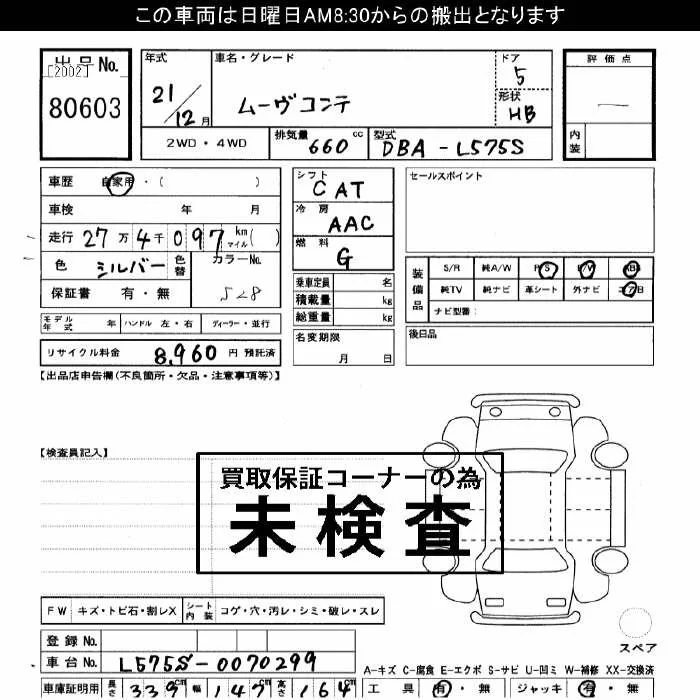 この車両は日曜日AM8:30からの搬出となります
出品 No.
[2002]
80603
年式
21/12月
車名・グレード
ムーヴコンテ
ドア
5
形状
HB
評価点
内装
2WD・4WD
排気量 660 cc
型式 DBA-L575S
車歴 自家用・( )
車検 年 月
走行 27万4千097 km マイル( )
色 シルバー 色替
カラーNo. S28
保証書 有・無
シフト
CAT
冷房
AAC
燃料
G
乗車定員 名
積載量 kg
総重量 kg
セールスポイント
装備品
S/R 純A/W P/S P/W ABS
純TV 純ナビ 革シート 外ナビ エアB
ナビ型番:
モデル年式 年 ハンドル 左・右 ディーラー・並行
名変期限
月 日
後日品
リサイクル料金 8,960 円 預託済
【出品店申告欄(不良箇所・欠品・注意事項等)】
【検査員記入】
買取保証コーナーの為
未検査
FW キズ・トビ石・割レX シート内装 コゲ・穴・汚レ・シミ・破レ・スレ
登録No.
車台No. L575S-0070299
スペア
A-キズ C-腐食 E-エクボ S-サビ U-凹ミ W-補修 XX-交換済
車庫証明用 長さ 339cm 幅 147cm 高さ 164cm
工具 有・無 ジャッキ 有・無